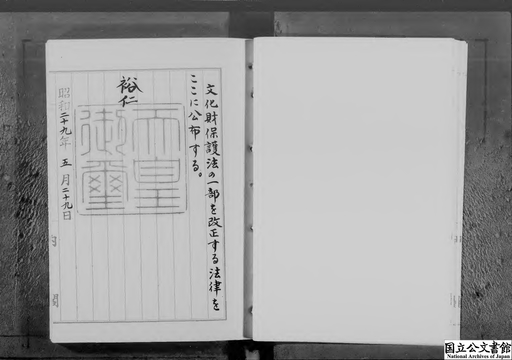 文化財保護法の一部を改正する法律を
ここに公布する。
裕仁
天皇
御璽
昭和二十九年五月二十九日
国立公文書館
National Archives of Japan